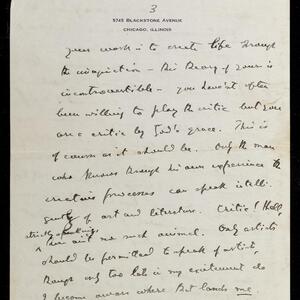 3
5745 BLACKSTONE AVENUE
CHICAGO, ILLINOIS
your work is to create life through
the imagination – this theory of yours is
incontrovertible – you haven't often
been willing to play the critic but you
are a critic by God's grace. This is
of course as it should be. Only the man
who knows through his own experience the
creative processes can speak intelli-
gently of art and literature. Critic! Hell,
strictly speaking
there ain't no such animal. Only artists
should be permitted to speak of artists,
though only too late in my excitement do
I become aware where that lands me.